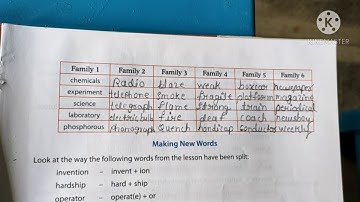 K
KINEMASTER
Family 1 Family 2 Family 3 Family 4 Family 5 Family 6
chemicals Radio blaze weak boxcar newspaper
experiment telephone smoke fragile platform magazine
science telegraph flame strong train periodical
laboratory electric bulb fire deaf coach newsboy
phosphorous phonograph Quench handicap conductor weekly
Making New Words
Look at the way the following words from the lesson have been split:
invention – invent + ion
hardship – hard + ship
operator – operat(e) + or